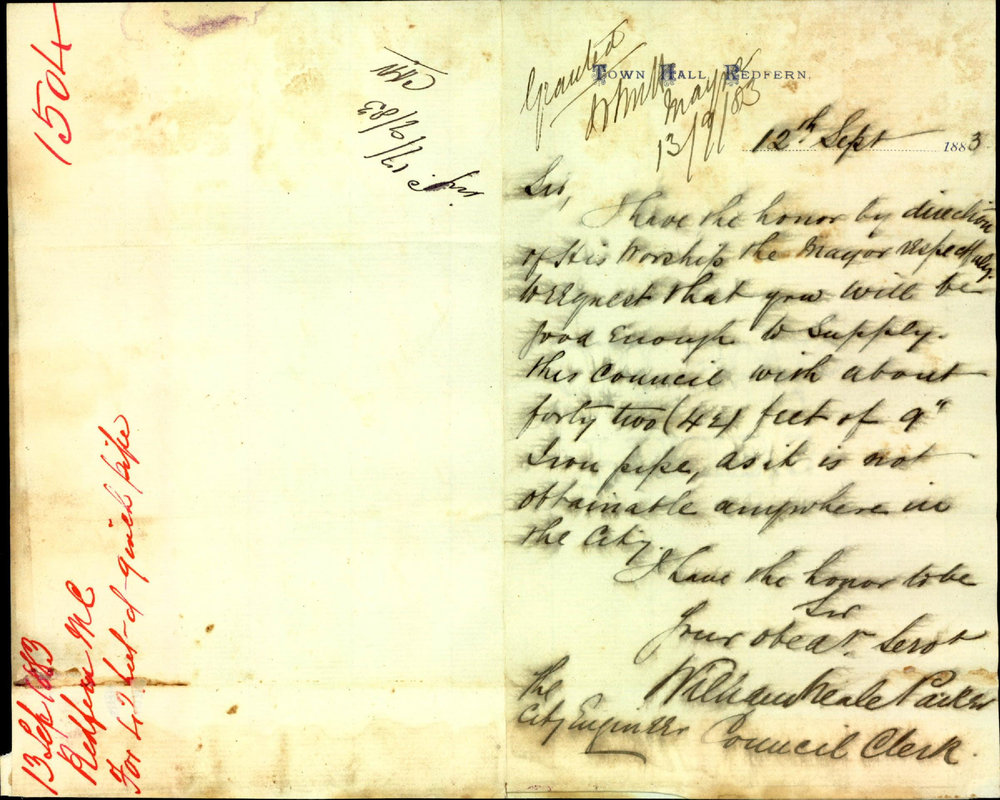 1504
13 Sep 1883
Redfern M C
For 42 feet of 9 inch pipe
Granted
Mayor
13/9/83
TOWN HALL REDFERN.
12th Sept 1883
Sir,
I have the honor by direction
of His Worship the Mayor respectfully
to request that you will be
good enough to supply
this Council with about
forty two (42) feet of 9"
Iron pipe, as it is not
obtainable anywhere in
the City.
I have the honor to be
Sir
Your obedt. Servt
William Neale Parker
Council Clerk.
The
City Engineer